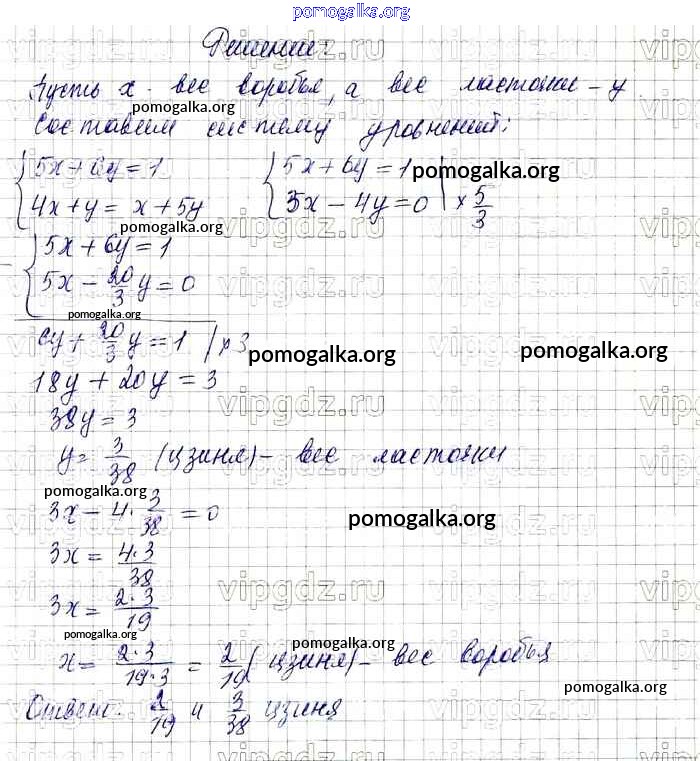 pomogalka.org
Решение:
Пусть x - вес воробья, а вес ласточки - y
pomogalka.org
Составим систему уравнений:
{5x + 6y = 1 {5x + 6y = 1 | pomogalka.org
{4x + y = x + 5y {3x - 4y = 0 | × 5/3
pomogalka.org
- {5x + 6y = 1
{5x - 20/3 y = 0
pomogalka.org
6y + 20/3 y = 1 | × 3 pomogalka.org pomogalka.org
18y + 20y = 3
38y = 3
y = 3/38 (цзиня) - вес ласточки
pomogalka.org
3x - 4 · 3/38 = 0 pomogalka.org
3x = 4·3/38
3x = 2·3/19
pomogalka.org pomogalka.org
x = 2·3/19·3 = 2/19 (цзиня) - вес воробья
pomogalka.org
Ответ: 2/19 и 3/38 цзиня
vipgdz.ru